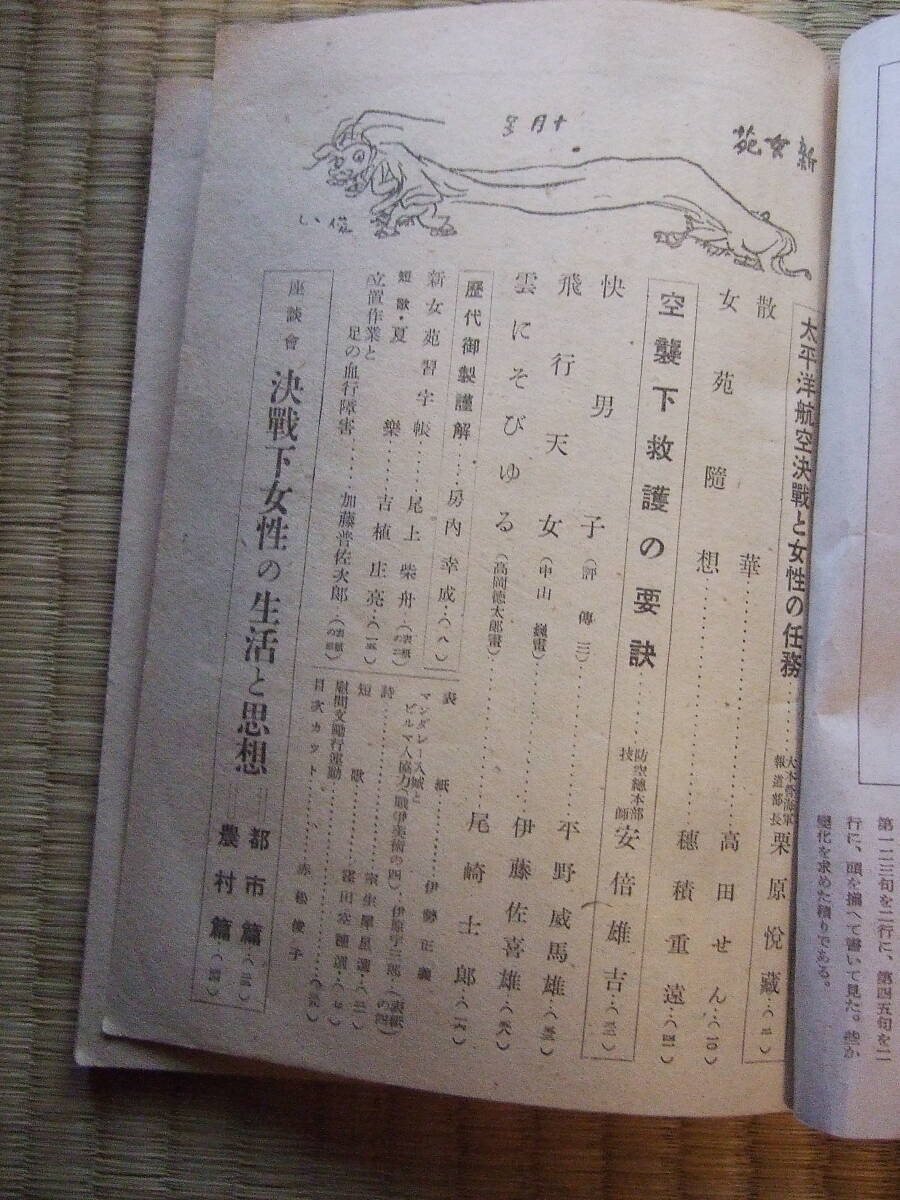 新女苑
十月号
俊い
太平洋航空決戰と女性の任務……大本營海軍報道部長 栗原悦藏‥(二)
散華……高田せん‥(一〇)
女苑隨想……穗積重遠‥(四一)
空襲下救護の要訣……防空總本部技師 安倍雄吉‥(三一)
快男子(評傳三)……平野威馬雄‥
飛行天女(中山巍畫)……伊藤佐喜雄‥
雲にそびゆる(高岡德太郎畫)……尾崎士郎‥(一六)
歷代御製謹解‥‥房内幸成‥(八)
新女苑習字帳‥‥尾上柴舟‥(表紙の二)
短歌・夏樂‥‥吉植庄亮‥
立置作業と足の血行障害‥‥加藤普佐次郎‥(表紙の三)
表紙……伊勢正義
マンダレー入城とビルマ人協力(戰爭美術の四)‥伊原宇三郎‥(表紙の四)
詩……室生犀星選‥
短歌……窪田空穗選‥
慰問文勵行運動
目次カット……赤松俊子
座談會 決戰下女性の生活と思想……都市篇‥
農村篇‥
第一二三句を二行に、第四五句を二
行に、頭を揃へて書いて見た。些か
變化を求めた積りである。